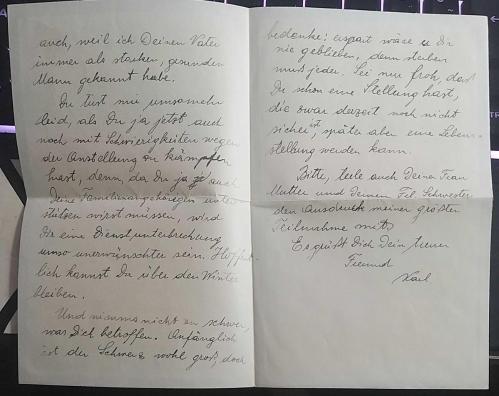 auch, weil ich Deinen Vater
immer als starken, gesunden
Mann gekannt habe.
Du tust mir umsomehr
leid, als Du ja jetzt, auch
noch mit Schwierigkeiten wegen
der Anstellung zu kämpfen
hast, denn, da Du ja auch
Deine Familienangehörigen unter
stützen wirst müssen, wird
Dir eine Dienstunterbrechung
umso unerwünschter sein. Hoffent-
lich kannst Du über den Winter
bleiben.
Und nimms nicht zu schwer,
was Dich betroffen. Anfänglich
ist der Schmerz wohl groß, doch
bedenke: erspart wäre es Dir
nie geblieben, denn sterben
muß jeder. Sei nur froh, daß
Du schon eine Stellung hast,
die zwar derzeit noch nicht
sicher ist, später aber eine Lebens-
stellung werden kann.
Bitte, teile auch Deiner Frau
Mutter und Deinem Frl. Schwester
den Ausdruck meiner großen
Teilnahme mit.
Es grüßt Dich Dein treuer
Freund
Karl